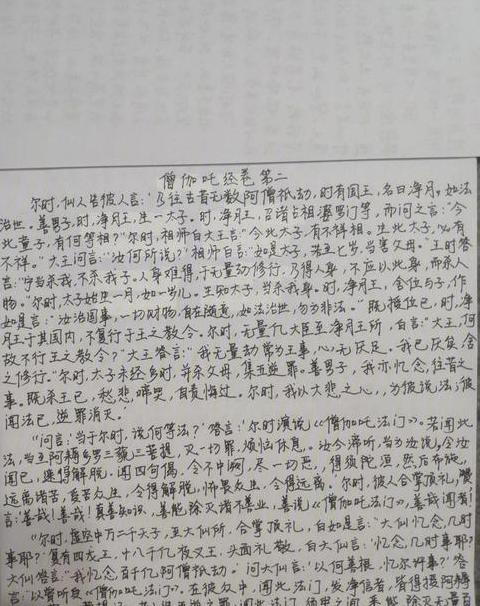 僧伽吒经卷第二
尔时，仙人告彼人言：'乃往古昔无数阿僧祇劫，时有国王，名曰净月，如法
治世。善男子，时，净月王，生一太子。时，净月王，召诸占相婆罗门等，而问之言：“今
此童子，有何等相？”尔时，相师白大王言：“今此太子，有不祥相。生此太子，必有
不祥。”大王问言：“汝何所说？”相师白言：“如是太子，若至七岁，当害父母。”王时答
言：“宁当杀我，不杀我子。人身难得，于无量劫修行，乃得人身，不应以此身，而杀人
物。”尔时，太子始生一月，如一岁儿。王知太子，当杀我身。时，净月王，舍位与子，作
如是言：“汝治国事，一切财物，自在随意，如法治世，勿为非法。”既授位已，时，净
月王于其国内，不复行于王之教令。尔时，无量亿大臣至净月王所，白言：“大王，何
故不行王之教令？”大王答言：“我无量劫常为王事，心无厌足。我已厌矣，舍
之修行。”尔时，太子未经多时，并杀父母，集五逆罪。善男子，我亦忆念，往昔之
事。既杀王已，愁悲啼哭，自责悔过。尔时，我以大悲之心，为彼说法，彼
闻法已，逆罪消灭。
“问言：‘当于尔时，说何等法？’答言：‘尔时演说《僧伽吒法门》。若闻此
法，当至阿耨多罗三藐三菩提，灭一切罪，烦恼休息。汝今谛听，当为汝说，令汝
闻已，速得解脱。闻四句偈，令不中断，尽一切恶，得须陀洹，然后布施，
远离诸苦，受苦众生，令得解脱，怖畏众生，令得远离。’尔时，彼人合掌顶礼，赞
言：‘善哉！善哉！真善知识，善能除灭诸不善业，善说《僧伽吒法门》，善哉闻者！
“尔时，虚空中万二千天子，至大仙所，合掌顶礼，白如是言：“大仙忆念，几时
事耶？’复有四龙王，十八千亿夜叉王，头面礼敬，白大仙言：‘忆念，几时事耶？’
大仙答言：“我忆念，百千亿阿僧祇劫。’问大仙言：‘以何善根，忆尔许事？’答
言：‘以曾听受《僧伽吒法门》。在彼众中，闻此法门，发净信者，皆得授阿耨